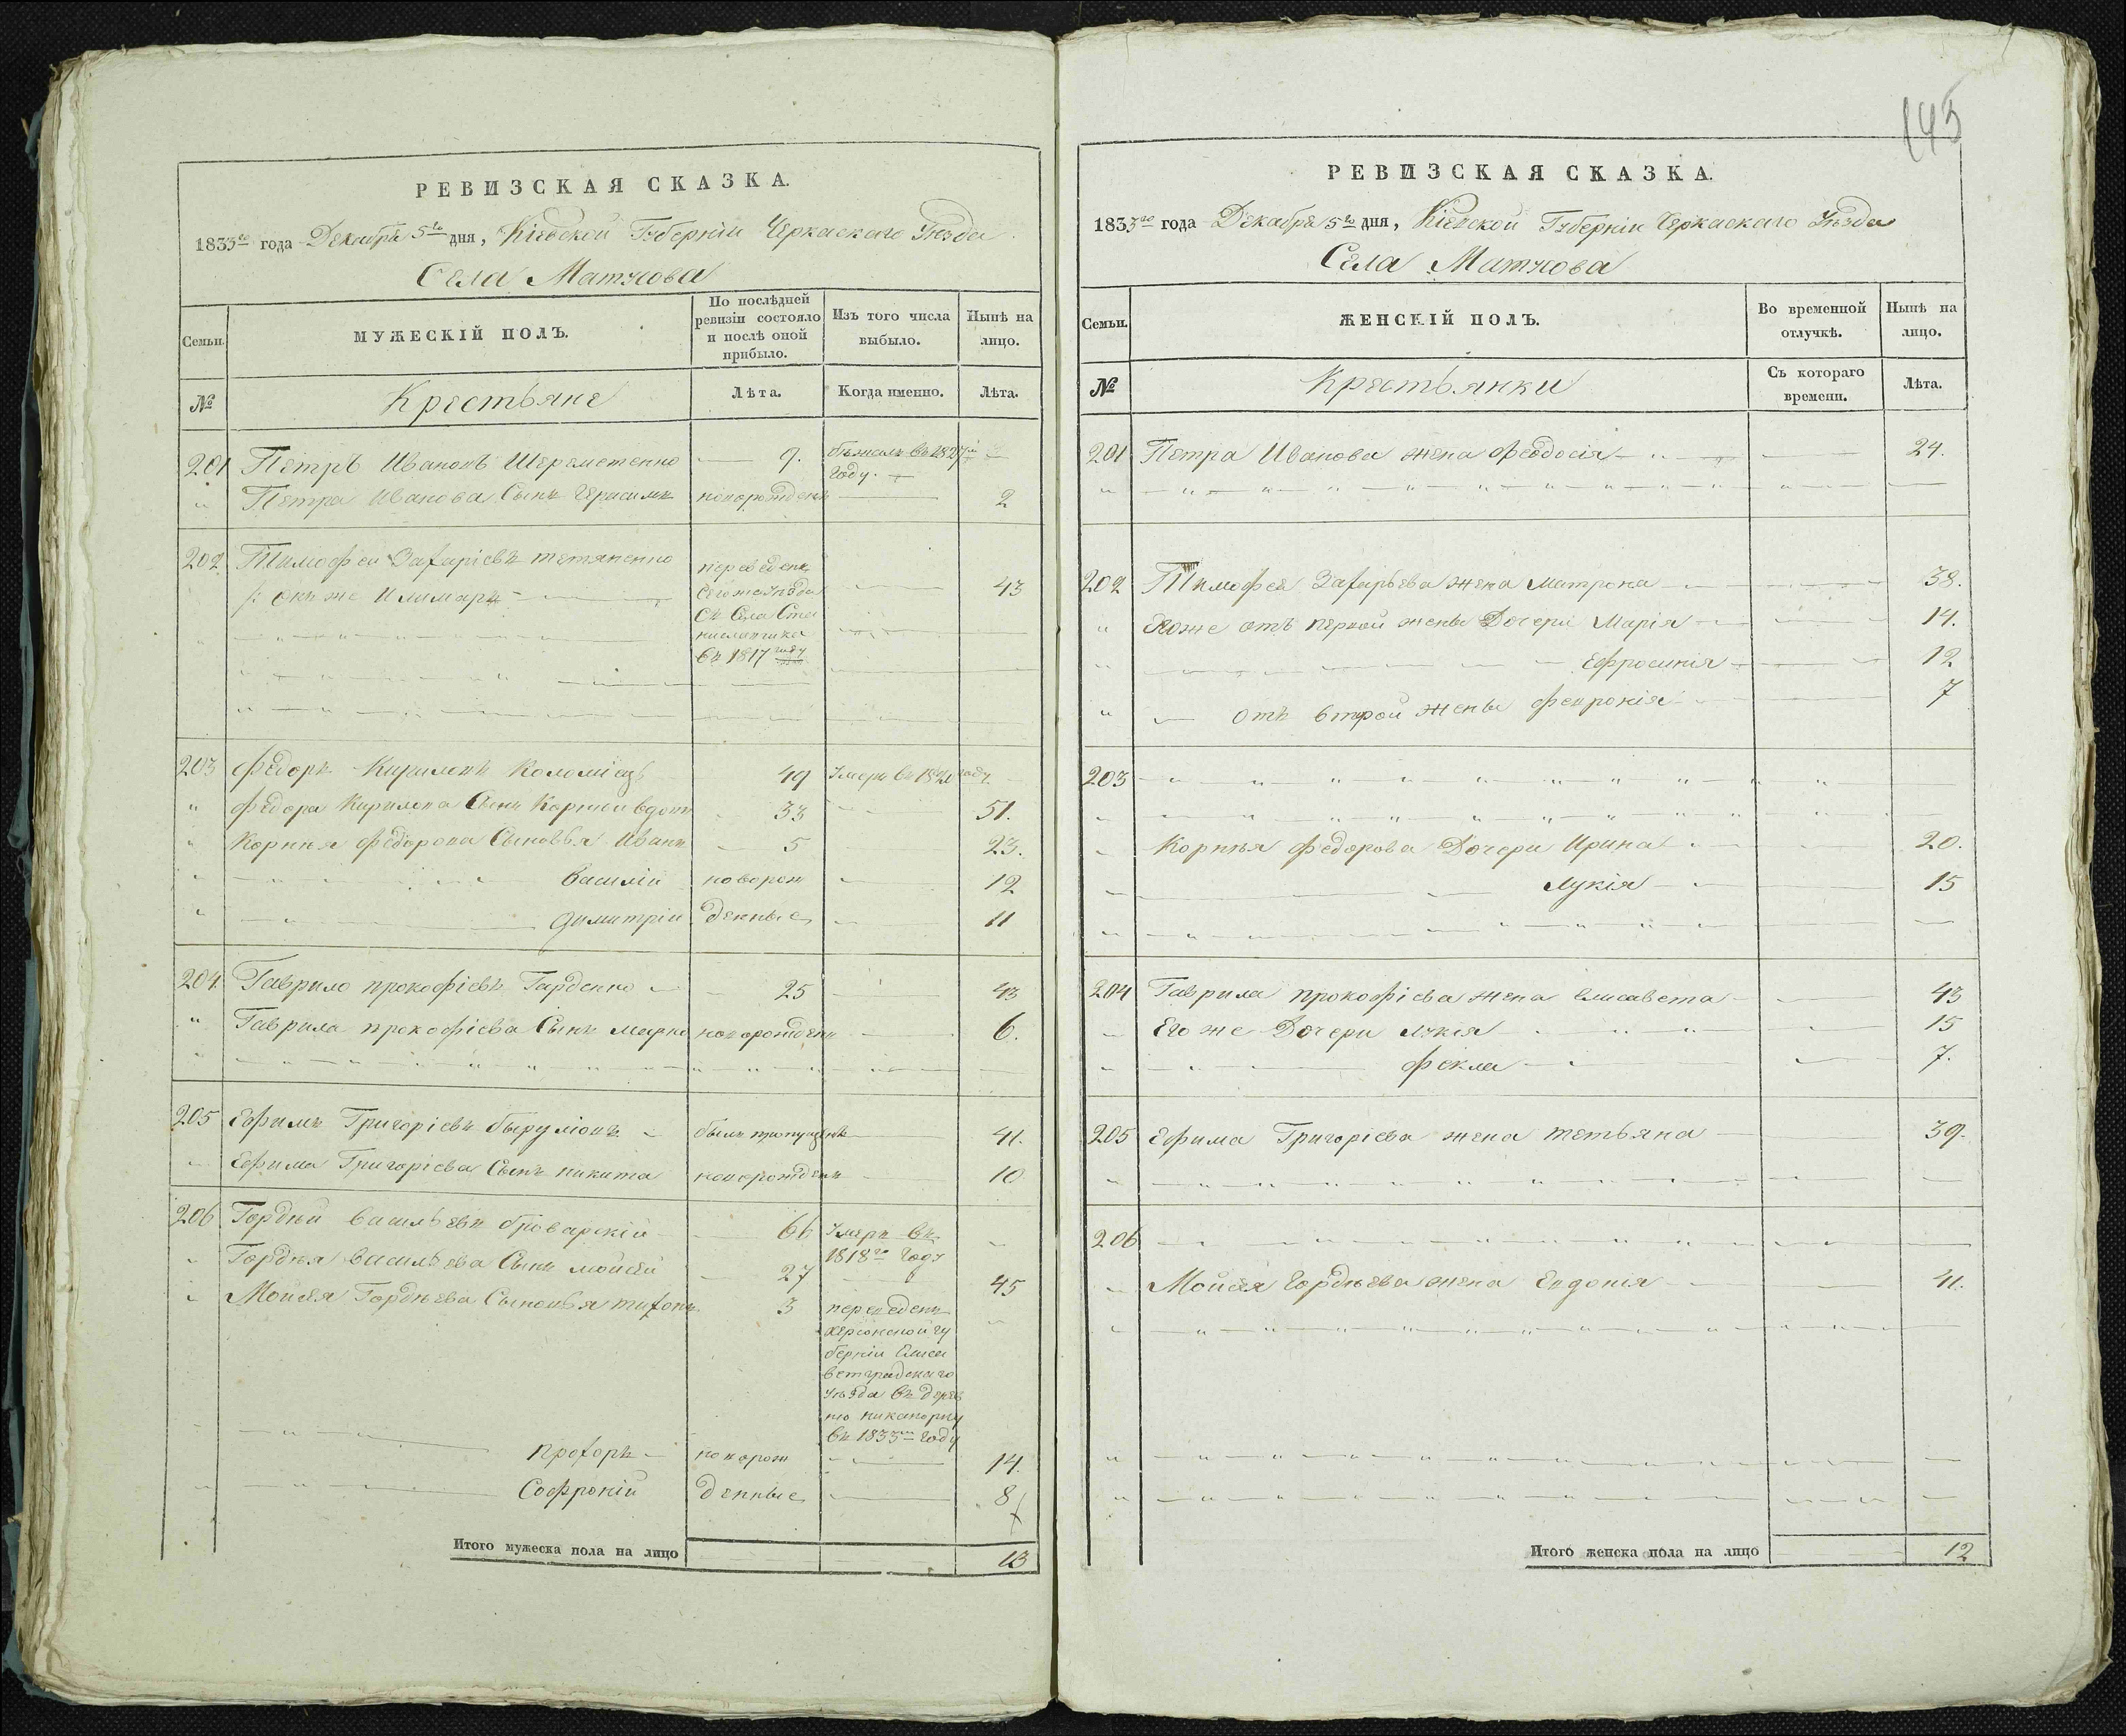 РЕВИЗСКАЯ СКАЗКА.
1833го года Декабря 5го дня, Кіевской Губерніи Черкаскаго Уѣзда
Села Матусова
Семьи. МУЖЕСКІЙ ПОЛЪ. По послѣдней ревизіи состояло и послѣ оной прибыло. Изъ того числа выбыло. Нынѣ на лицо.
№ Крестьяне Лѣта. Когда именно. Лѣта.
201 Петръ Ивановъ Шереметенко 9. бѣжалъ въ 1827м
году.
" Петра Иванова Сынъ Герасимъ новорожденъ 2
202 Тимофей Захаріевъ тетяненко переведенъ
/: Онъ же Илимаръ сегоже Уѣзда 43
съ Села Ста
ниславчика
въ 1817 году
203 Федоръ Кириловъ Коломіецъ 49 Умеръ въ году.
" Федора Кирилова Сынъ Корней вдовъ 33 51.
" Корнѣя Федорова Сыновья Иванъ 5 23.
" Василій новорож 12
" Димитрій денные 11
204 Гаврило прокофіевъ Гарденко 25 43
" Гаврила прокофіева Сынъ марко новорожденъ 6.
205 Ефимъ Григоріевъ былъ пропущенъ 41.
Ефима Григоріева Сынъ никита новорожденъ 10
206 Гордѣй васильевъ броварскій 66 Умеръ въ
1818го году
Гордѣя васильева Сынъ мойсей 27 45
Мойсея Гордѣева Сыновья тихонъ 3 переведенъ
херсонской гу
берніи Елиса
ветградскаго
уѣзда въ дерев
ню никанорку
въ 1833м году
прохоръ новорож 14.
Софроній денные 8
Итого мужеска пола на лицо 13
145
РЕВИЗСКАЯ СКАЗКА.
1833го года Декабря 5го дня, Кіевской Губерніи Черкаскаго Уѣзда
Села Матусова
Семьи. ЖЕНСКІЙ ПОЛЪ. Во временной отлучкѣ. Нынѣ на лицо.
№ Крестьянки Съ котораго времени. Лѣта.
201 Петра Иванова жена Феодосія 24.
202 Тимофея Захарьева жена Матрона 38.
" Егоже отъ первой жены Дочери Марія 14.
Ефросинія 12
" отъ второй жены Февронія 7
203
Корнѣя Федорова Дочери Ирина 20.
Лукія 15
204 Гаврила прокофіева жена Елисавета 43
Его же Дочери Лукія 15
Фекла 7.
205 Ефима Григоріева жена тетьяна 39.
206
Мойсея Гордѣева жена Евдокія 41.
Итого женска пола на лицо 12